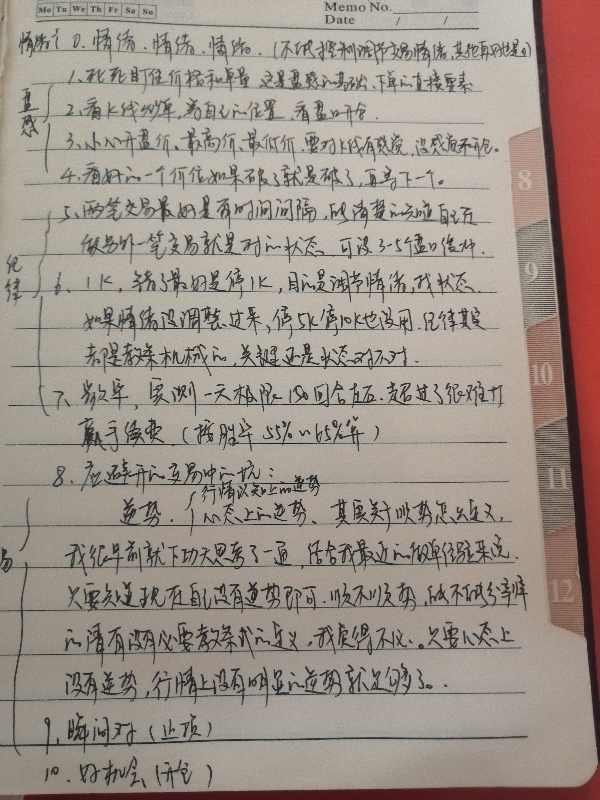 Mo Tu We Th Fr Sa Su
Memo No.
Date / /
0. 情绪、情绪、情绪。(不能控制调节交易情绪,其他再好也是0)
1. 死死盯住价格和单量 这是盘感的基础、下单的直接要素
盘感
2. 看K线做单,的位置,看盘口开仓
3. 小心开盘价、最高价、最低价,要对K线有感觉,没感觉不开仓。
4. 看好的一个价位如果破了就是破了,再等下一个。
5. 两笔交易最好是有时间间隔,能清楚的知道自己在
做另外一笔交易就是对的状态 可设3-5个盘口
纪律
6. 1K,错了最好是停1K,目的是调节情绪,找状态.
如果情绪没调整过来,停5K停10K也没用.纪律其实
都是教条机械的,关键还是状态对不对.
7. 单,实测一天极限150回合左右.超过了很难打
赢手续费.(按胜率55%~65%算)
8. 应避开的交易中的坑:
行情认知上的逆势
逆势. 心态上的逆势、其实关于顺势怎么定义,
我很早前就下功夫思考了一通,结合我最近的做单经验来说.
只要知道现在自己没有逆势即可.顺不顺势,能不能
的请有没有必要教条式的定义,我觉得不必.只要心态上
没有逆势,行情上没有明显的逆势就足够了。
9. 瞬间对(止损)
10. 好机会(开仓)
8
9
10
11
12